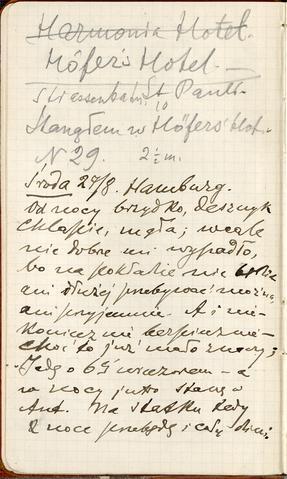 Harmonia Hotel.
Höfer's Hotel. —
Strassenbahn St Pauli.
10
Stanąłem w Höfers Hot.
N 29. 2 ½ m.
Środa 24/8. Hamburg.
Od nocy brzydko, deszczyk
chlapie, mgła; wcale
nie dobre mi wypadło,
bo na pokładzie nie
ani dłużej przebywać można,
ani przyjemnie. A i nie-
koniecznie bezpiecznie —
choć to już mało znaczy;
Jadę o 6½ wieczorem — a
w nocy jutro stanę w
Ant. Na statku tedy
2 noce przebędę i cały dzień